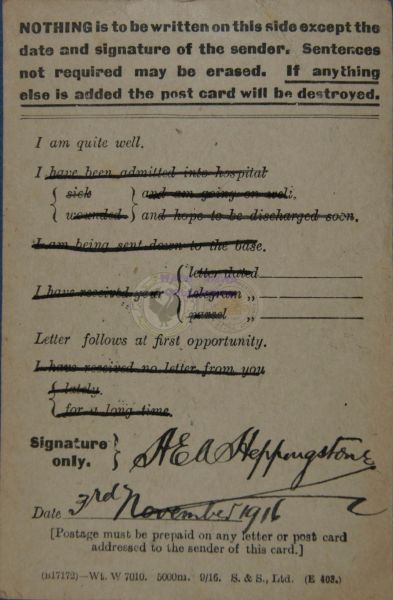 NOTHING is to be written on this side except the
date and signature of the sender. Sentences
not required may be erased. If anything
else is added the post card will be destroyed.
I am quite well.
I have been admitted into hospital
{ sick } and am going on well.
{ wounded } and hope to be discharged soon.
I am being sent down to the base.
{ letter dated
I have received your { telegram ,,
{ parcel ,,
Letter follows at first opportunity.
I have received no letter from you
{ lately.
{ for a long time.
Signature } A E A Heppingstone
only.
Date 3rd November 1916
[Postage must be prepaid on any letter or post card
addressed to the sender of this card.]
(B17172)—Wt. W 7010. 5000m. 9/16. S. & S., Ltd. (E 403.)